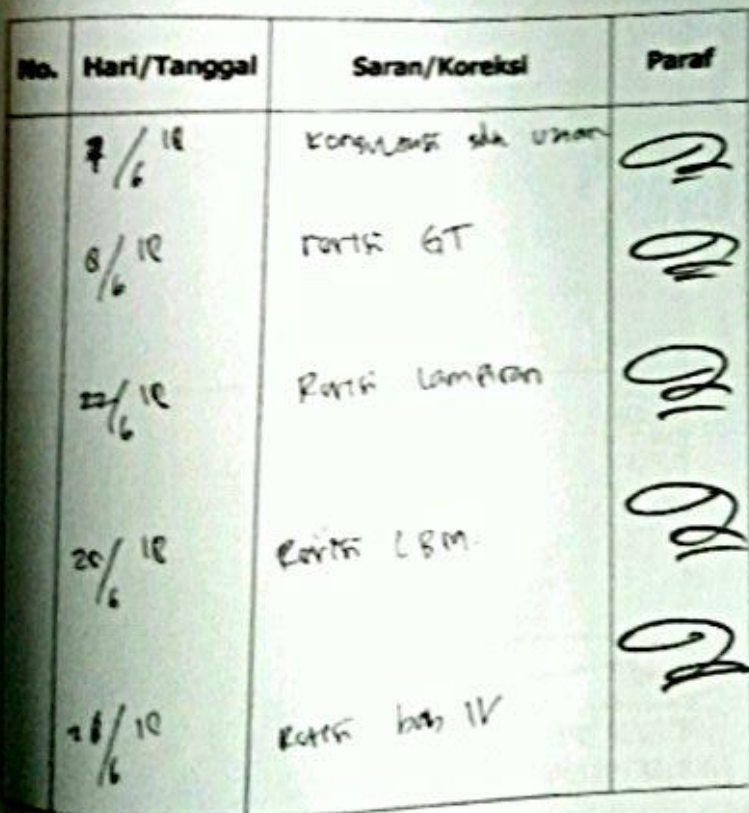 No. Hari/Tanggal Saran/Koreksi Paraf
7/6 18 Konsultasi
8/6 18 revisi GT
22/6 18 Revisi Lampiran
/6 18 Revisi LBM.
/6 18 Revisi bab IV